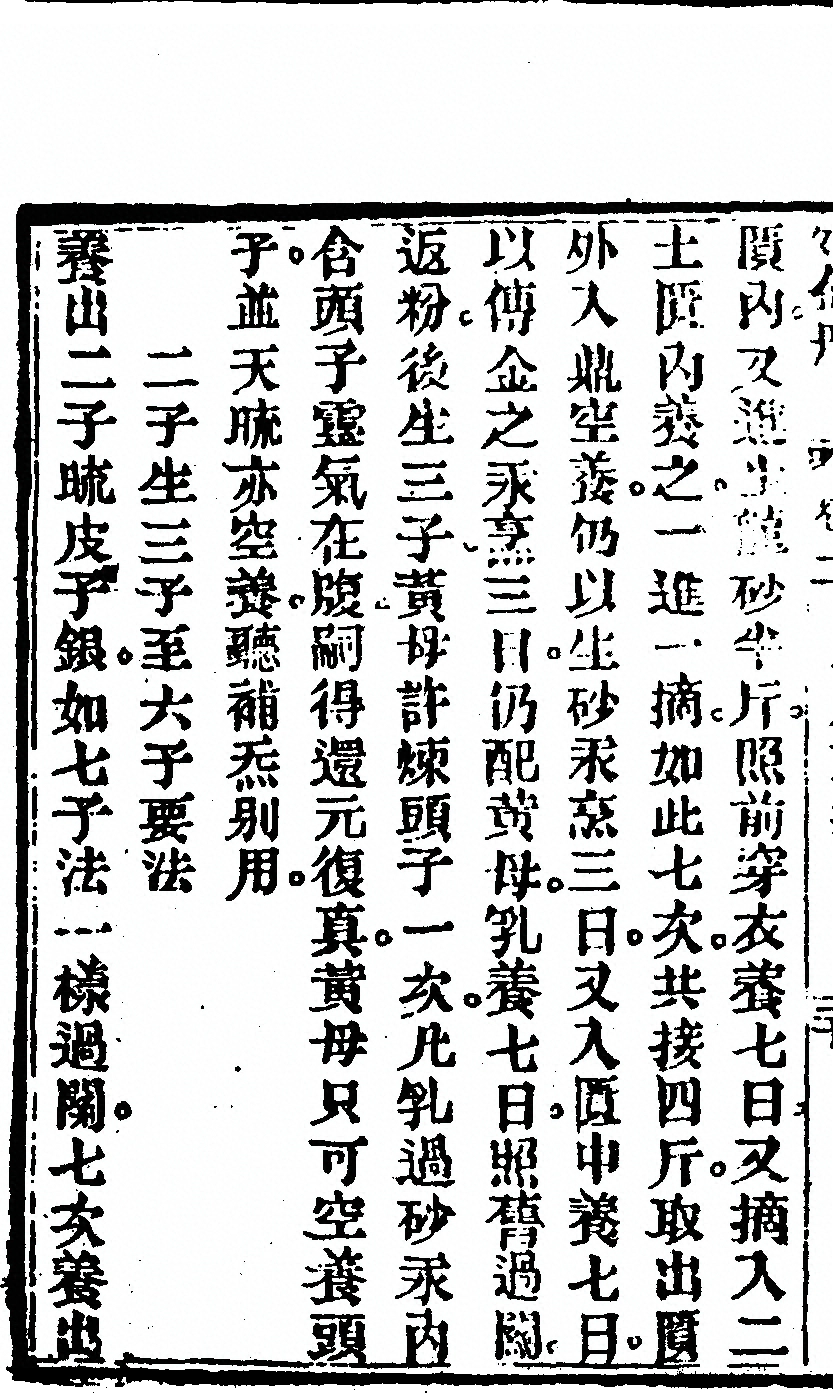 匱內又進生龍砂半斤照前穿衣養七日又摘入二
土匱內養之一進一摘如此七次共接四斤取出匱
外入鼎空養仍以生砂汞烹三日又入匱中養七日
以傳金之汞烹三日仍配黃母乳養七日照舊過關
返粉後生三子黃母許煉頭子一次凡乳過砂汞內
含頭子靈氣在腹嗣得還元復真黃母只可空養頭
子並天硫亦空養聽補炁別用
二子生三子至六子要法
養出二子硫皮子銀如七子法一樣過關七次養出